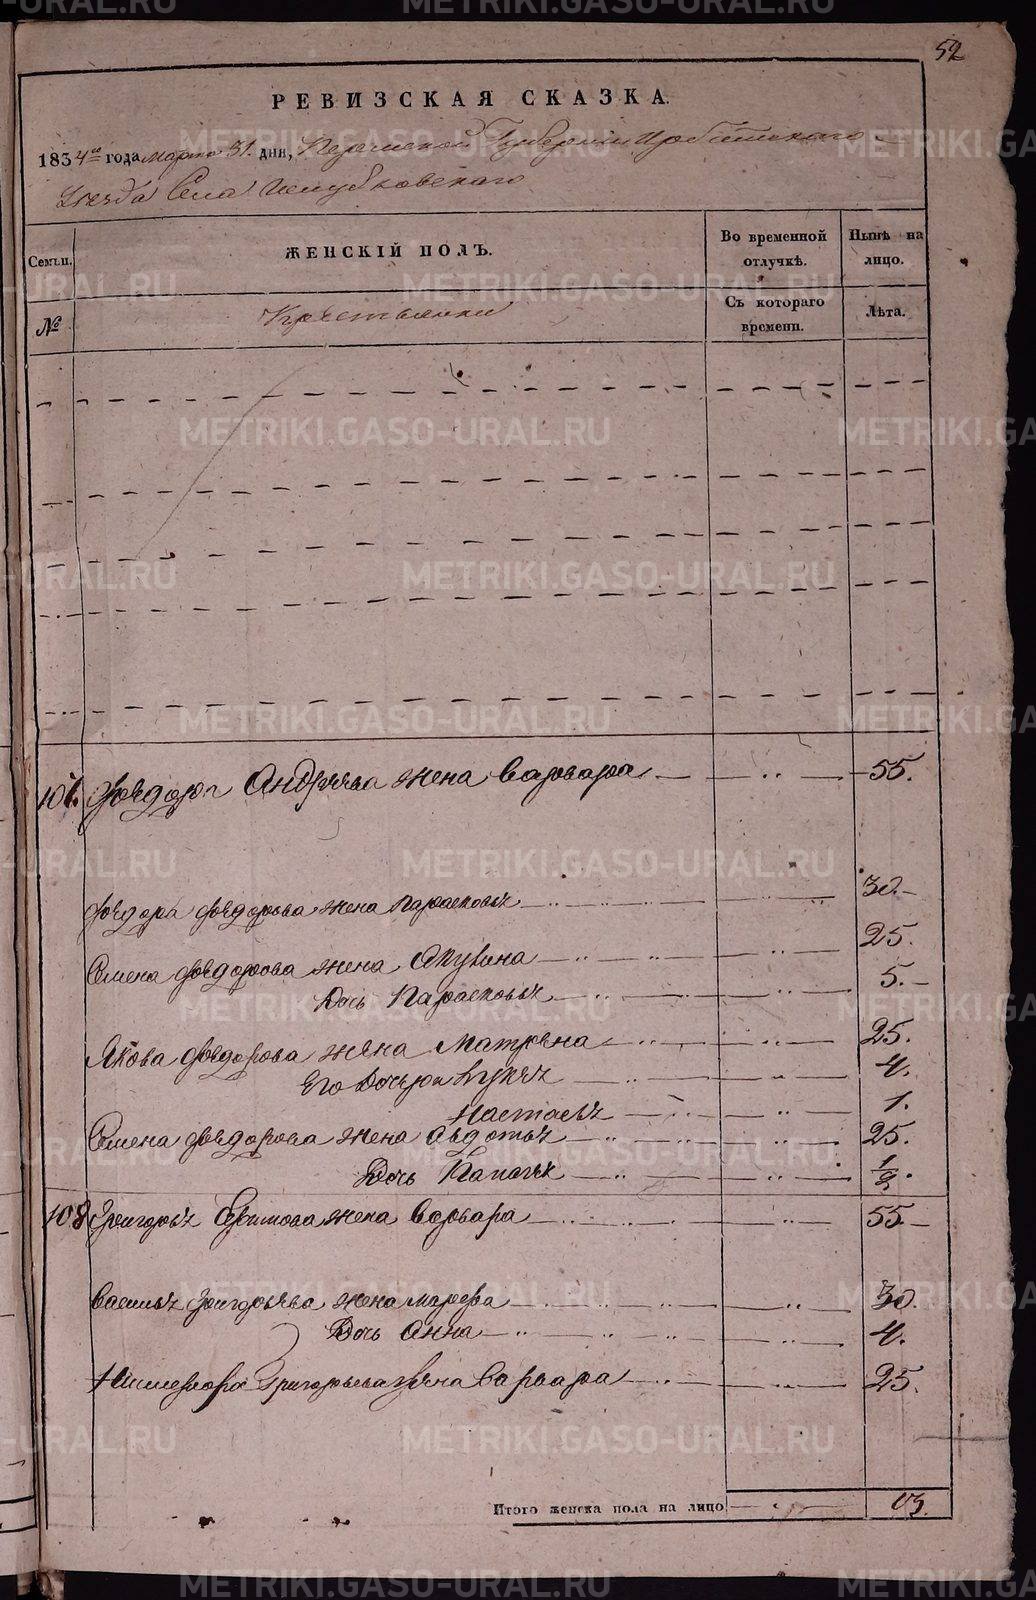 52
РЕВИЗСКАЯ СКАЗКА.
1834го года марта 31. дня, Пермской Губернии Ирбитскаго
Уезда Села
ЖЕНСКІЙ ПОЛЪ.
Во временной отлучкѣ.
Нынѣ на лицо.
Семьи.
№
Крестьянки
Съ котораго времени.
Лѣта.
107. Ѳедора Андреева жена Варвара — ,, — 55.
Федора Федорова жена Парасковья — ,, — 30.
Семена Федорова жена Акулина — ,, — 25.
Дочь Парасковья — ,, — 5.
Якова Федорова жена Матрена — ,, — 25.
Его Дочери Лукья — ,, — 4.
Настасья — ,, — 1.
Семена Федорова жена Авдотья — ,, — 25.
Дочь — ,, — 1/2.
108 Григорья Ефимова жена Варвара — ,, — 55
Василья Григорьева жена Марфа — ,, — 30.
Дочь Анна — ,, — 4.
Никифора Григорьева жена Варвара — ,, — 25.
Итого женска пола на лицо — ,, — 13.
METRIKI.GASO-URAL.RU